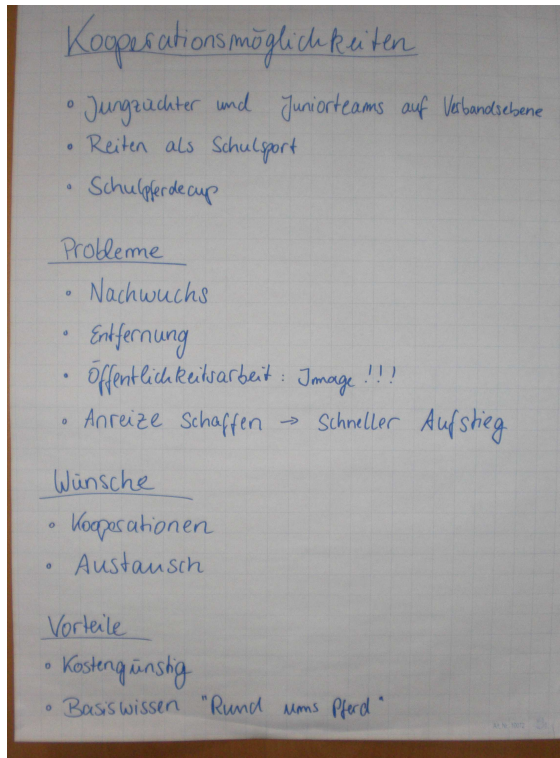 Kooperationsmöglichkeiten
• Jungzüchter und Juniorteams auf Verbandsebene
• Reiten als Schulsport
• Schulpferdecup
Probleme
• Nachwuchs
• Entfernung
• Öffentlichkeitsarbeit: Image!!!
• Anreize Schaffen → Schneller Aufstieg
Wünsche
• Kooperationen
• Austausch
Vorteile
• Kostengünstig
• Basiswissen "Rund ums Pferd"